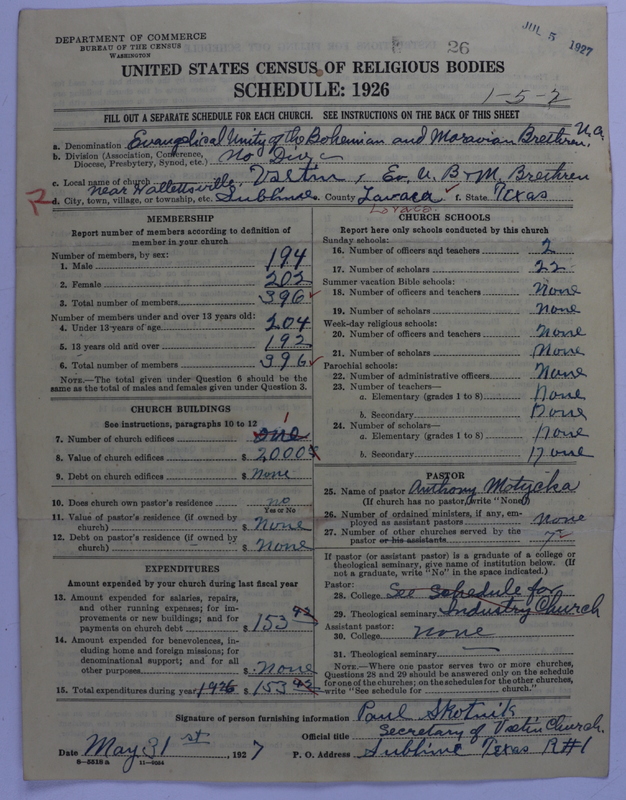 JUL 5 1927
DEPARTMENT OF COMMERCE
BUREAU OF THE CENSUS
WASHINGTON
26
UNITED STATES CENSUS OF RELIGIOUS BODIES
SCHEDULE: 1926
1-5-2
FILL OUT A SEPARATE SCHEDULE FOR EACH CHURCH. SEE INSTRUCTIONS ON THE BACK OF THIS SHEET
a. Denomination Evangelical Unity of the Bohemian and Moravian Brethren, N.A.
b. Division (Association, Conference, Diocese, Presbytery, Synod, etc.) No Div.
c. Local name of church Vsetin, Ev. U. B & M. Brethren
near Hallettsville,
d. City, town, village, or township, etc. Sublime e. County Lavaca f. State Texas
Lavaca
MEMBERSHIP
Report number of members according to definition of member in your church
Number of members, by sex:
1. Male 194
2. Female 202
3. Total number of members 396
Number of members under and over 13 years old:
4. Under 13 years of age 204
5. 13 years old and over 192
6. Total number of members 396
NOTE.—The total given under Question 6 should be the same as the total of males and females given under Question 3.
CHURCH BUILDINGS
See instructions, paragraphs 10 to 12
1
7. Number of church edifices one
8. Value of church edifices $ 2000
9. Debt on church edifices $ None
10. Does church own pastor's residence no
Yes or No
11. Value of pastor's residence (if owned by church) $ None
12. Debt on pastor's residence (if owned by church) $ None
EXPENDITURES
Amount expended by your church during last fiscal year
13. Amount expended for salaries, repairs, and other running expenses; for improvements or new buildings; and for payments on church debt $ 153
14. Amount expended for benevolences, including home and foreign missions; for denominational support; and for all other purposes $ None
15. Total expenditures during year 1926 $ 153
CHURCH SCHOOLS
Report here only schools conducted by this church
Sunday schools:
16. Number of officers and teachers 2
17. Number of scholars 22
Summer vacation Bible schools:
18. Number of officers and teachers None
19. Number of scholars None
Week-day religious schools:
20. Number of officers and teachers None
21. Number of scholars None
Parochial schools:
22. Number of administrative officers None
23. Number of teachers—
a. Elementary (grades 1 to 8) None
b. Secondary None
24. Number of scholars—
a. Elementary (grades 1 to 8) None
b. Secondary None
PASTOR
25. Name of pastor Anthony Motycka
(If church has no pastor, write "None")
26. Number of ordained ministers, if any, employed as assistant pastors None
27. Number of other churches served by the pastor or his assistants 7
If pastor (or assistant pastor) is a graduate of a college or theological seminary, give name of institution below. (If not a graduate, write "No" in the space indicated.)
Pastor:
28. College See schedule for
29. Theological seminary Industry Church
Assistant pastor:
30. College none
31. Theological seminary
NOTE.—Where one pastor serves two or more churches, Questions 28 and 29 should be answered only on the schedule for one of the churches; on the schedules for the other churches, write "See schedule for church."
Signature of person furnishing information Paul Skotnik
Official title Secretary of Vsetin Church.
Date May 31st, 1927 P. O. Address Sublime Texas R#1
8—5518a 11—9064